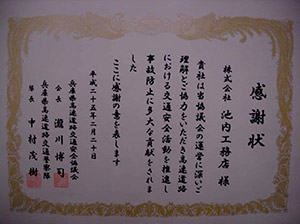 感謝状
株式会社 池内工務店 様
貴社は当協議会の運営に深いご
理解とご協力をいただき高速道路
における交通安全活動を推進し
事故防止に多大な貢献をされま
した
ここに感謝の意を表します
平成二十五年二月二十日
兵庫県高速道路交通安全協議会
会長 瀧川博司
兵庫県高速道路交通警察隊
隊長 中村茂樹